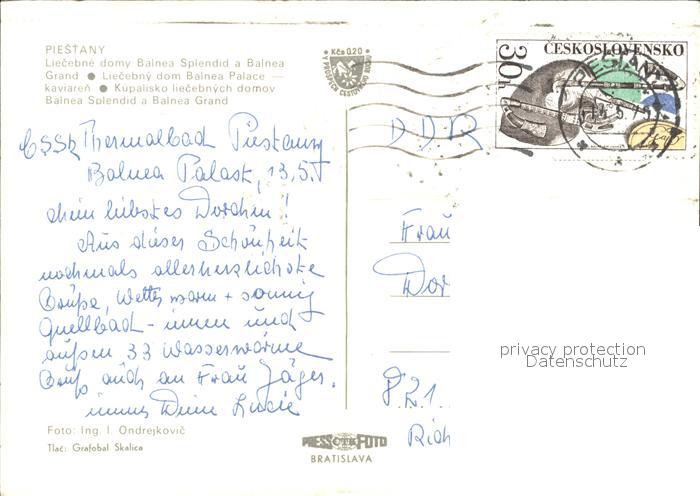 PIEŠŤANY
Liečebné domy Balnea Splendid a Balnea
Grand ● Liečebný dom Balnea Palace —
kaviareň ● Kúpalisko liečebných domov
Balnea Splendid a Balnea Grand
Kčs 0,20
36h
ČESKOSLOVENSKO
PIEŠŤANY
ČSSR Thermalbad Piestany
Balnea Palast, 13.5.
mein liebstes Dorchen!
Aus dieser Schönheit
nochmals allerherzlichste
Grüße, Wetter warm + sonnig
Quellbad - innen und
außen 33 Wasserwärme
Gruß auch an Frau Jäger.
immer Deine Lucie
DDR
Frau
Dor
821
Rich
privacy protection
Datenschutz
Foto: Ing. I. Ondrejkovič
Tlač: Grafobal Skalica
PRESSFOTO
BRATISLAVA